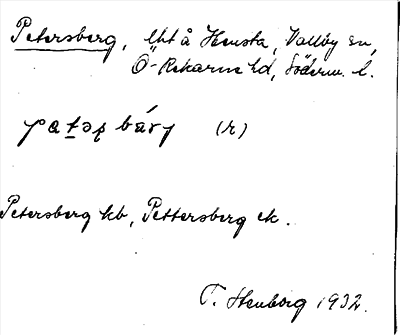 Petersberg, lht å Hensta, Vallby sn,
Ö-Rekarne hd, Söderm. l.
pat̲əʂbárj (r)
Petersberg kb, Pettersberg ek.
T. Stenborg 1932.